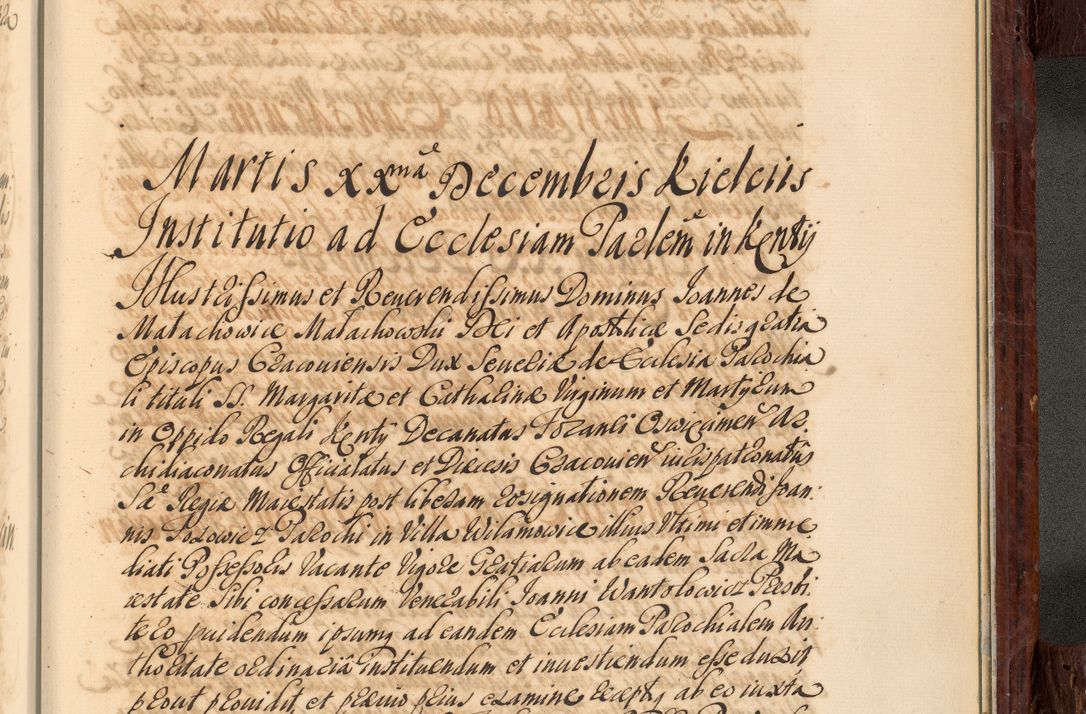 Martis XXmâ Decembris Kielciis
Institutio ad Ecclesiam Parlem in Kenty
Illustrissimus et Reuerendissimus Dominus Joannes de
Małachowice Małachowski Dei et Apostolicæ Sedis gratia
Episcopus Cracouiensis Dux Seueriæ de Ecclesia Parochia
li tituli SS. Margaritæ et Catharinæ Virginum et Martyrum
in Oppido Regali Kenty Decanatus Foranei Oswięcimen Ar
chidiaconatus Officialatus et Diæcesis Cracouien iurispatronatus
Sæ Regiæ Maiestatis post liberam resignationem Reuerendi Joan:
nis Porowicz Parochi in Villa Wilamowice illius Vltimi et imme
diati Possessoris Vacante Vigore Gratiarum ab eadem Sacra Ma
iestate Sibi concessarum Venerabili Joanni Wantolowicz Presbi
tero puidendum ipsumq ad eandem Ecclesiam Parochialem Au
thoritate ordinariâ instituendum et inuestiendum esse duxit
prout prouidit et præuio prius examine recepto ab eo iuxta